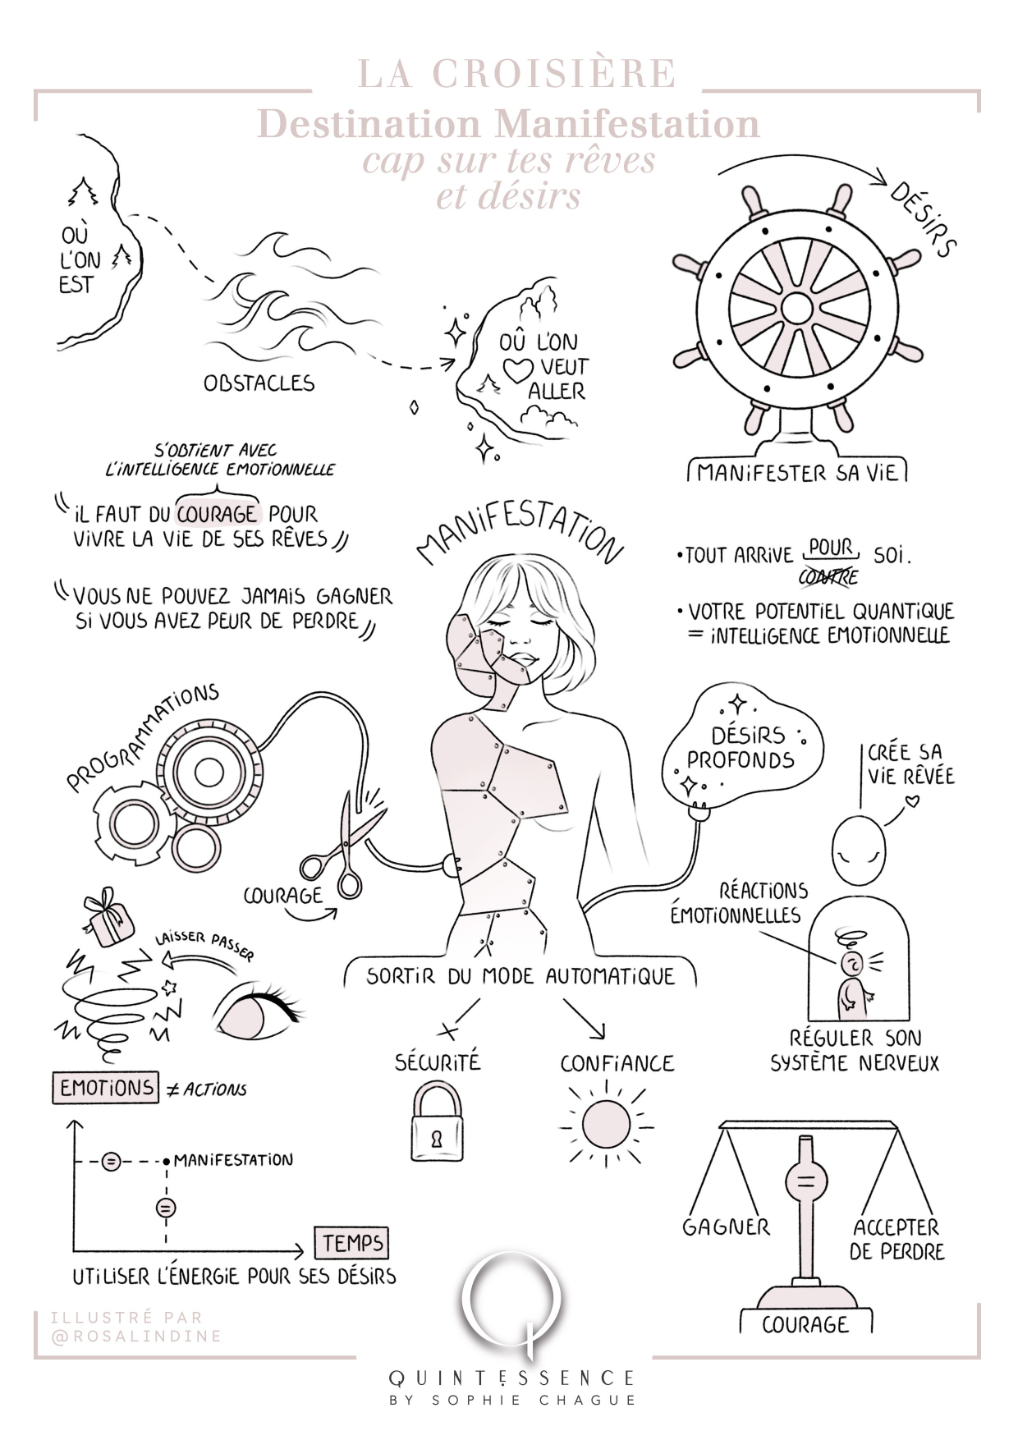 LA CROISIÈRE
Destination Manifestation
cap sur tes rêves
et désirs
OÙ
L'ON
EST
OBSTACLES
OÛ L'ON
VEUT
ALLER
DÉSIRS
MANIFESTER SA VIE
S'OBTIENT AVEC
L'INTELLIGENCE EMOTIONNELLE
"IL FAUT DU COURAGE POUR
VIVRE LA VIE DE SES RÊVES"
"VOUS NE POUVEZ JAMAIS GAGNER
SI VOUS AVEZ PEUR DE PERDRE"
MANIFESTATION
•TOUT ARRIVE POUR SOI.
CONTRE
• VOTRE POTENTIEL QUANTIQUE
= INTELLIGENCE EMOTIONNELLE
PROGRAMMATIONS
COURAGE
DÉSIRS
PROFONDS
CRÉE SA
VIE RÊVÉE
RÉACTIONS
ÉMOTIONNELLES
RÉGULER SON
SYSTÈME NERVEUX
LAISSER PASSER
EMOTIONS ≠ ACTIONS
SORTIR DU MODE AUTOMATIQUE
SÉCURITÉ
CONFIANCE
= MANIFESTATION
=
TEMPS
UTILISER L'ÉNERGIE POUR SES DÉSIRS
=
GAGNER
ACCEPTER
DE PERDRE
COURAGE
ILLUSTRÉ PAR
@ROSALINDINE
Q
QUINTESSENCE
BY SOPHIE CHAGUE